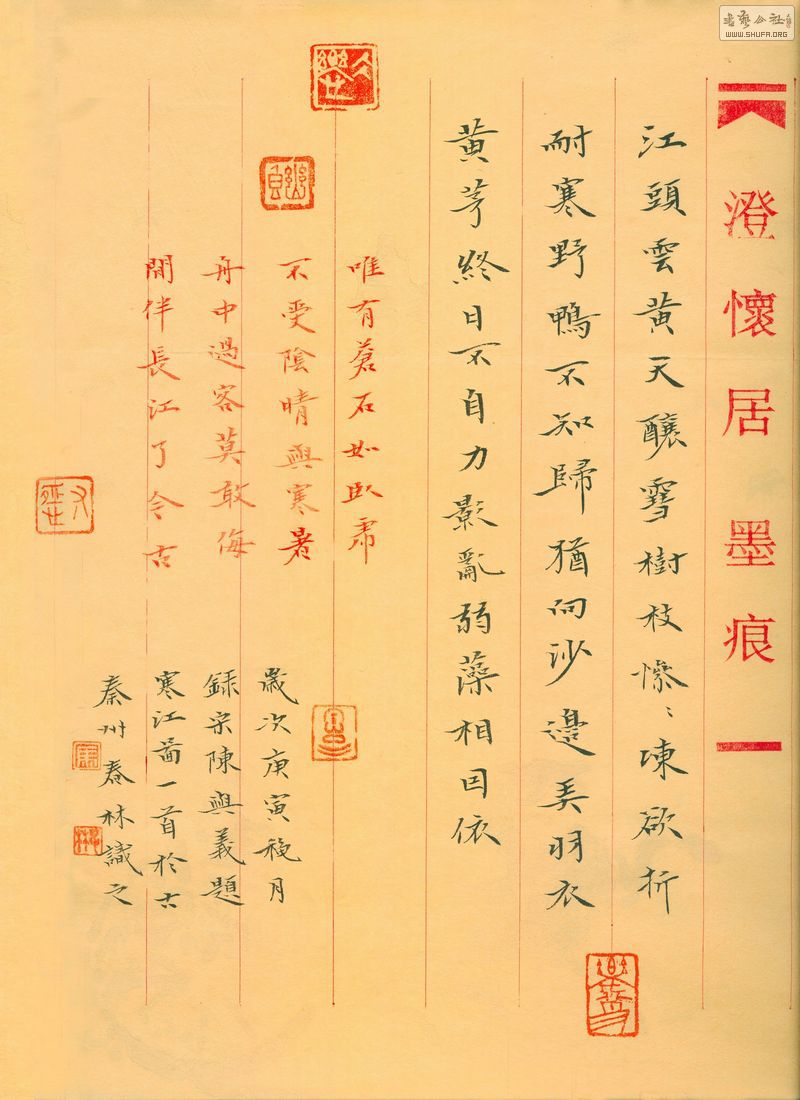 書藝公社
WWW.SHUFA.ORG
澄懷居墨痕
江頭雲黃天釀雪樹枝慘〻凍欲折
耐寒野鴨不知歸猶向沙邊弄羽衣
黃茅終日不自力影亂弱藻相因依
唯有蒼石如臥虎
不受陰晴與寒暑
舟中過客莫敢侮
閒伴長江了今古
歲次庚寅穐月
錄宋陳與義題
寒江啚一首於古
秦州春林識之